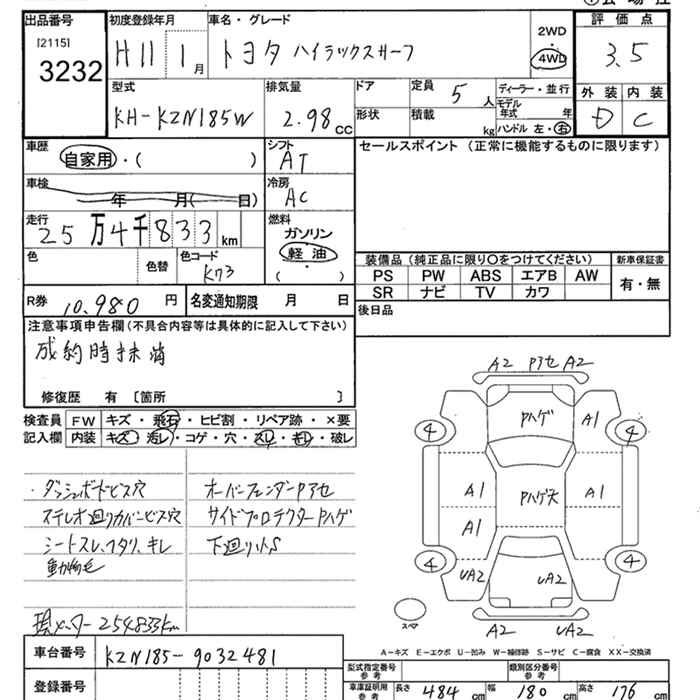 出品番号 初度登録年月 車名・グレード 2WD 評価点
[2115] H11 1月 トヨタ ハイラックスサーフ 4WD 3.5
3232
型式 排気量 ドア 定員 5人 ディーラー・並行 外装 内装
KH-KZN185W 2.98cc 形状 積載 kg モデル年式 年 D C
ハンドル 左・右
車歴 自家用・( ) シフト AT セールスポイント (正常に機能するものに限ります)
車検 年 月( 日) 冷房 AC
走行 25万4千833km 燃料 ガソリン
軽油
( )
色 色替 色コード K73
装備品 (純正品に限り○をつけてください) 新車保証書
PS PW ABS エアB AW 有・無
SR ナビ TV カワ
R券 10,980円 名変通知期限 月 日
後日品
注意事項申告欄(不具合内容等は具体的に記入して下さい)
成約時抹消
修復歴 有 〔箇所 〕
検査員 FW キズ・飛石・ヒビ割・リペア跡・×要
記入欄 内装 キズ・汚レ・コゲ・穴・スレ・キレ・破レ
A2 Pアセ A2
Pハゲ A1
4 4
A1 Pハゲ大 A1
A1
4 4
UA2 UA2
A2 UA2
スペア
・ダッシュボードビス穴 オーバーフェンダーPアセ
ステレオ廻りカバービス穴 サイドプロテクターPハゲ
シートスレ、ヘタリ、キレ 下廻り小S
動物毛
現メーター254833km
A-キズ E-エクボ U-凹み W-補修跡 S-サビ C-腐食 XX-交換済
車台番号 KZN185-9032481
型式指定番号 参考 類別区分番号 参考
登録番号 車庫証明用 参考 長さ 484cm 幅 180cm 高さ 176cm